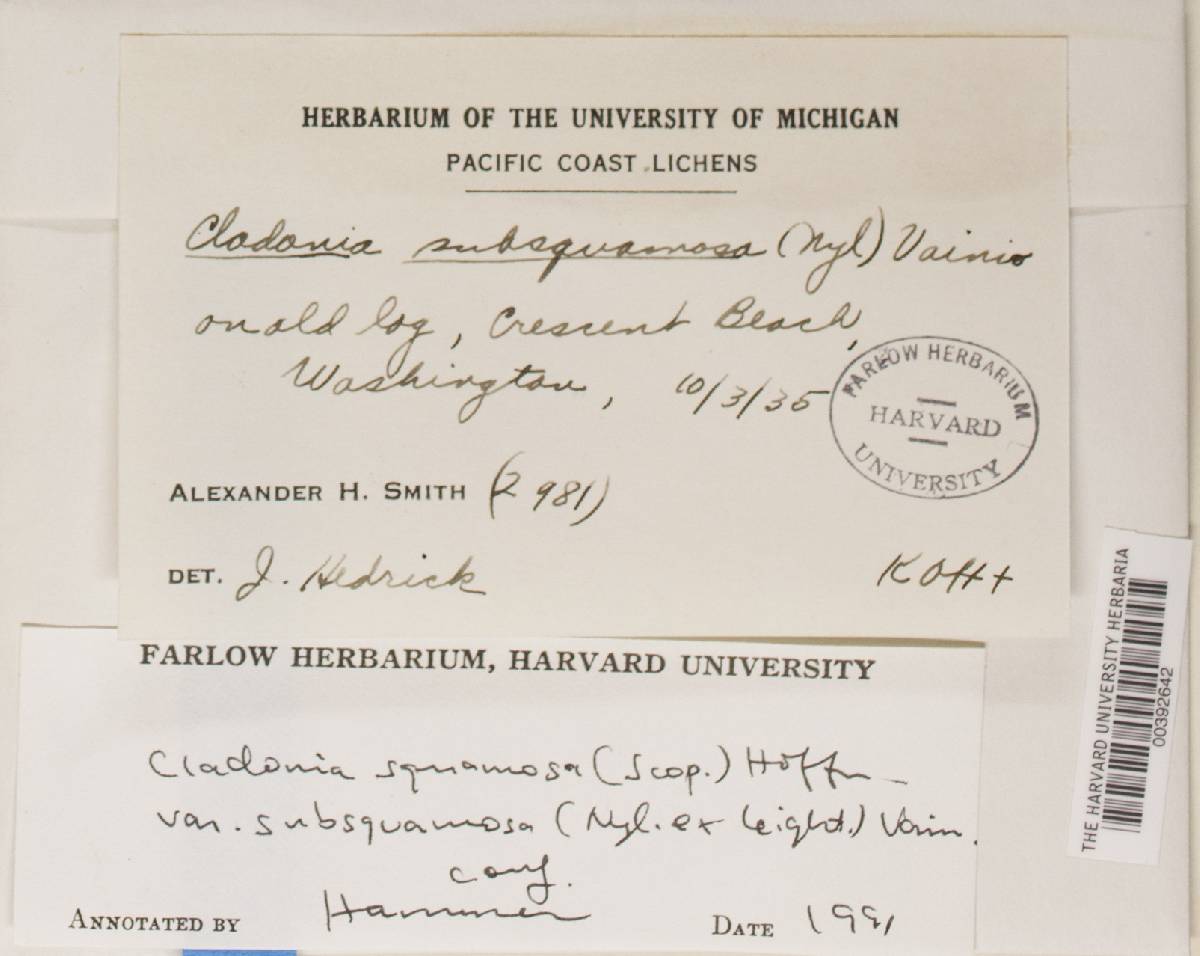 HERBARIUM OF THE UNIVERSITY OF MICHIGAN
PACIFIC COAST LICHENS
Cladonia subsquamosa (Nyl) Vainio
on old log, Crescent Beach,
Washington, 10/3/35
FARLOW HERBARIUM
HARVARD
UNIVERSITY
ALEXANDER H. SMITH (2981)
DET. J. Hedrick
KOH+
THE HARVARD UNIVERSITY HERBARIA
00392642
FARLOW HERBARIUM, HARVARD UNIVERSITY
Cladonia squamosa (Scop.) Hoffm
var. subsquamosa (Nyl. ex Leight.) Vain.
conf.
ANNOTATED BY Hammer DATE 1991